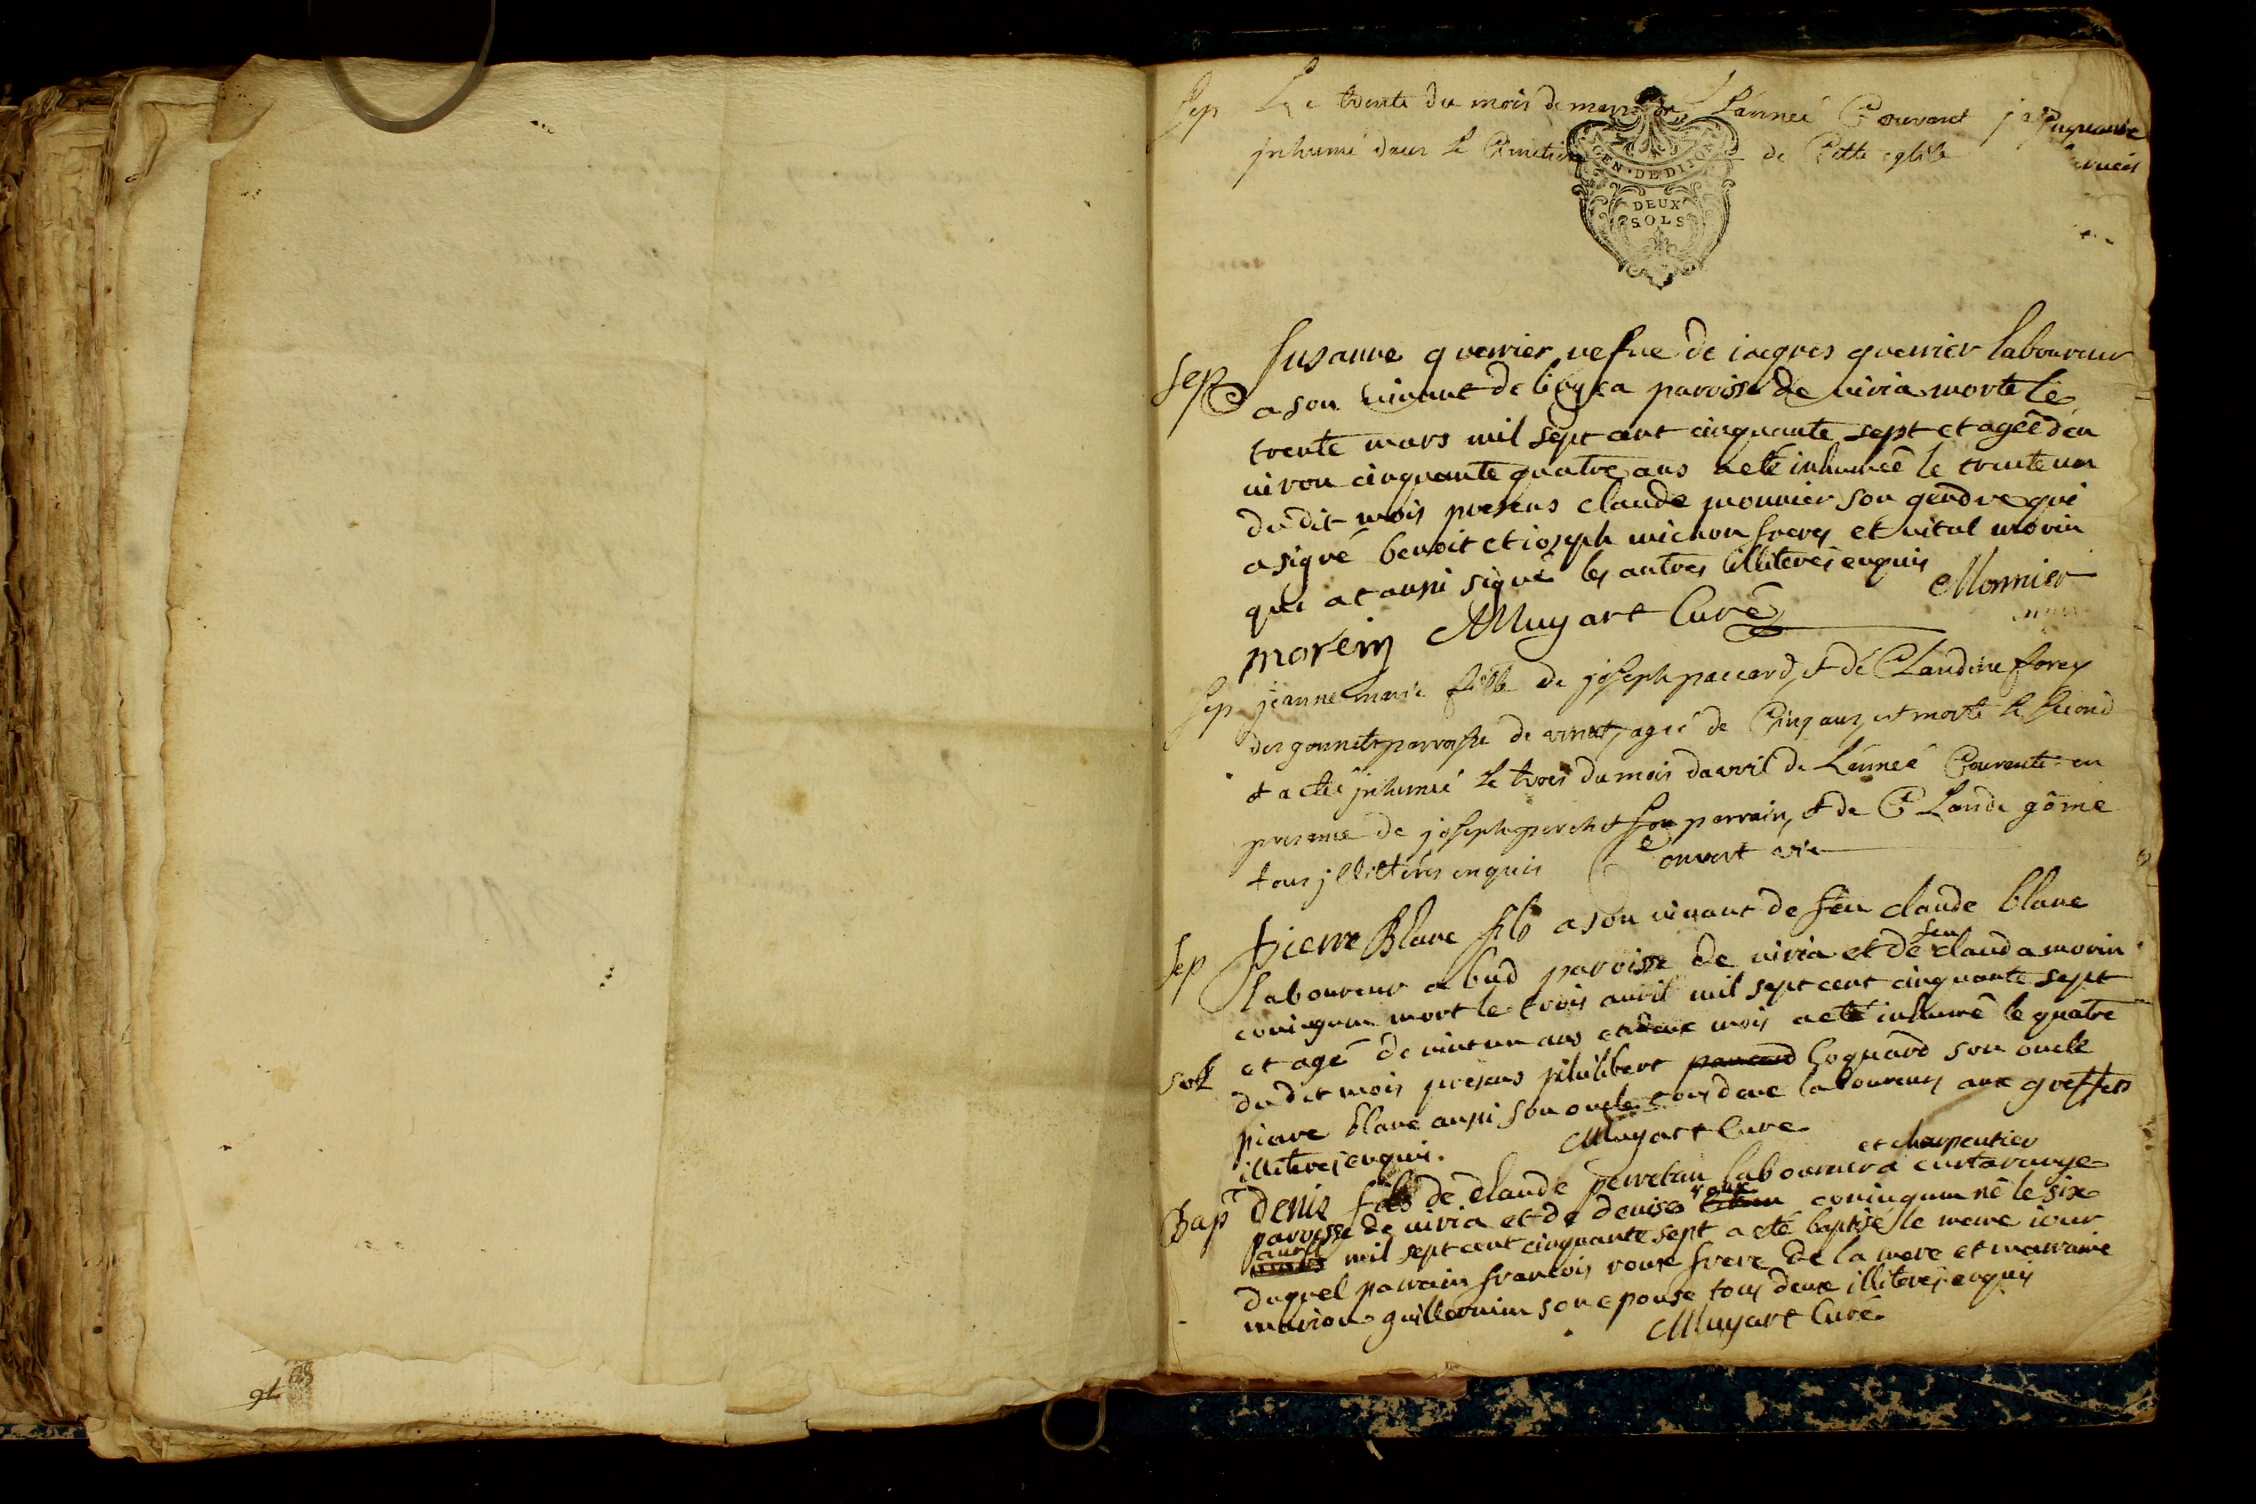 Sep Le trente du mois de mars de L'année Courant j'ay
inhumé dans le Cimetiere de Cette eglise
GEN·DE DIJON
DEUX
SOLS
Sep Susanne guerrier vefue de iacques guerrier laboureur
a son vivant de paroisse de viria morte le
trente mars mil sept cent cinquante sept et ageê d'en
uiron cinquante quatre ans a eté inhumeê le trente un
du dit mois presens claude monnier son gendre qui
a signé benoit et ioseph michon freres et vital morin
qui at aussi signé les autres illiterés enquis
Monnier
morein Muyart Curé
Sep jeanne marie fille de joseph paccard, et de Claudine forey
des gonnets parroisse de viriat, ageé de Cinq ans, est morte le second
et a etée jnhumeé le trois du mois d'avril de L'année Courante en
presence de joseph perchet son parrain, et de Claude gôme
tous jllittérés enquis Convert vic
Sep pierre Blanc fils a son vivant de feu claude blanc
laboureur a bud paroisse de viria et de feu clauda morin
coniugum mort le trois avril mil sept cent cinquante sept
et agé de vint un ans et deux mois a eté inhumé le quatre
du dit mois presens philibert paccard Coguard son oncle
piere blanc aussi son oncle tous deux laboureurs aux greffets
illiterés enquis. Muyart Cure
et charpentier
Bap Denis fils de claude perretan laboureur a curtaringe
paroisse de viria et de denise roux coniugum né le six
avril mars mil sept cent cinquante sept a eté baptisé le meme iour
duquel parrain francois roux frere de la mere et marraine
marion guillermin son epouse tous deux illiterés enquis
Muyart Curé